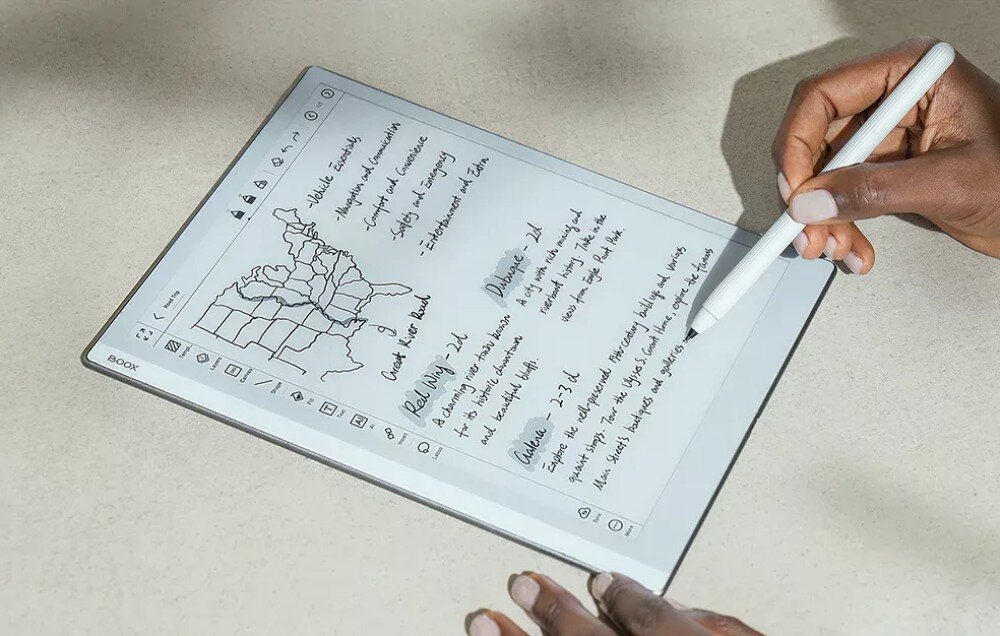 BOOX
Road Trip
Layers
Canvas
Shape
Fill
Text
AI
Insert
Lasso
Sync
More
-Vehicle Essentials
-Navigation and Communication
-Comfort and Convenience
-Safety and Emergency
-Entertainment and Extra
Great River Road
Red Wing - 2d
A charming river town known
for its historic downtown
and beautiful bluffs.
Dubuque - 2d
A city with rich mining and
riverboat history. Take in the
view from Eagle Point Park.
Galena - 2-3 d
Explore the well-preserved 19th-century buildings and various
quaint shops. Tour the Ulysses S. Grant Home, explore the famous
Main Street's boutiques and galleries